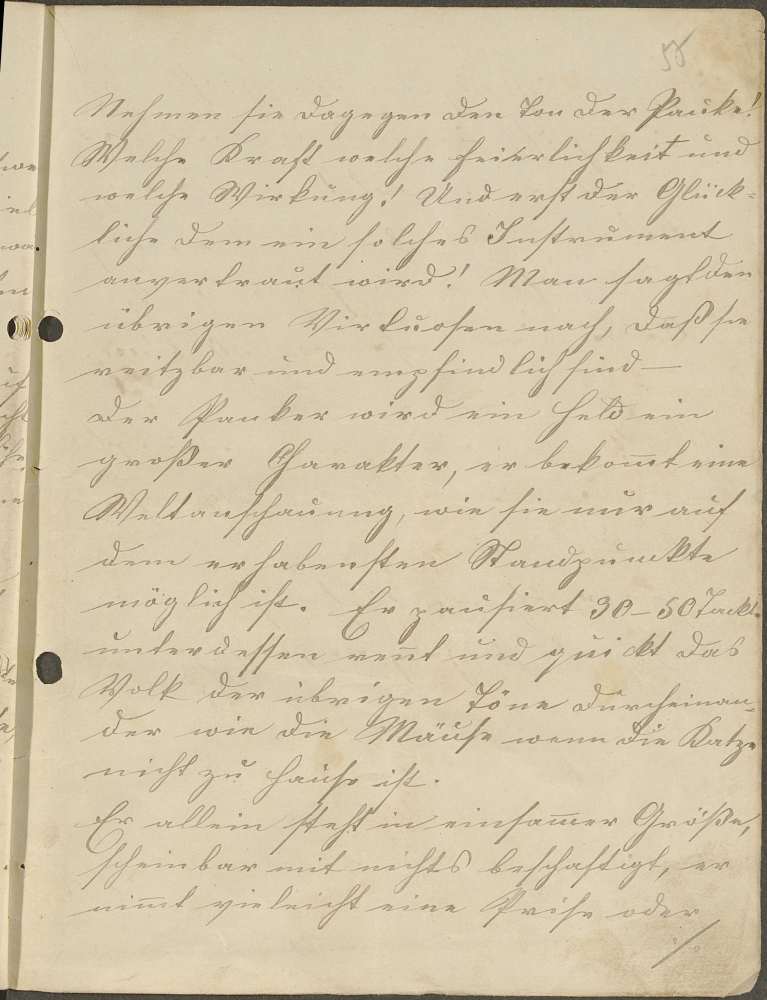 58
Nehmen sie dagegen den Ton der Pauke!
Welche Kraft welche feierlichkeit und
welche Wirkung! Und erst der Glück-
liche dem ein solches Instrument
anvertraut wird! Man sagt den
übrigen Virtuosen nach, daß sie
reitzbar und empfindlich sind —
der Pauker wird ein Held ein
großer Charakter, er bekom̅t eine
Weltanschauung, wie sie nur auf
dem erhabensten Standpunkte
möglich ist. Er pausiert 30-50 Tackte
unterdessen ren̅t und quickt das
Volk der übrigen Töne durcheinan-
der wie die Mäuse wenn die Katze
nicht zu Hause ist.
Er allein steht in einsam̅er Größe,
scheinbar mit nichts beschaftigt, er
nim̅t vieleicht eine Prise oder
./.